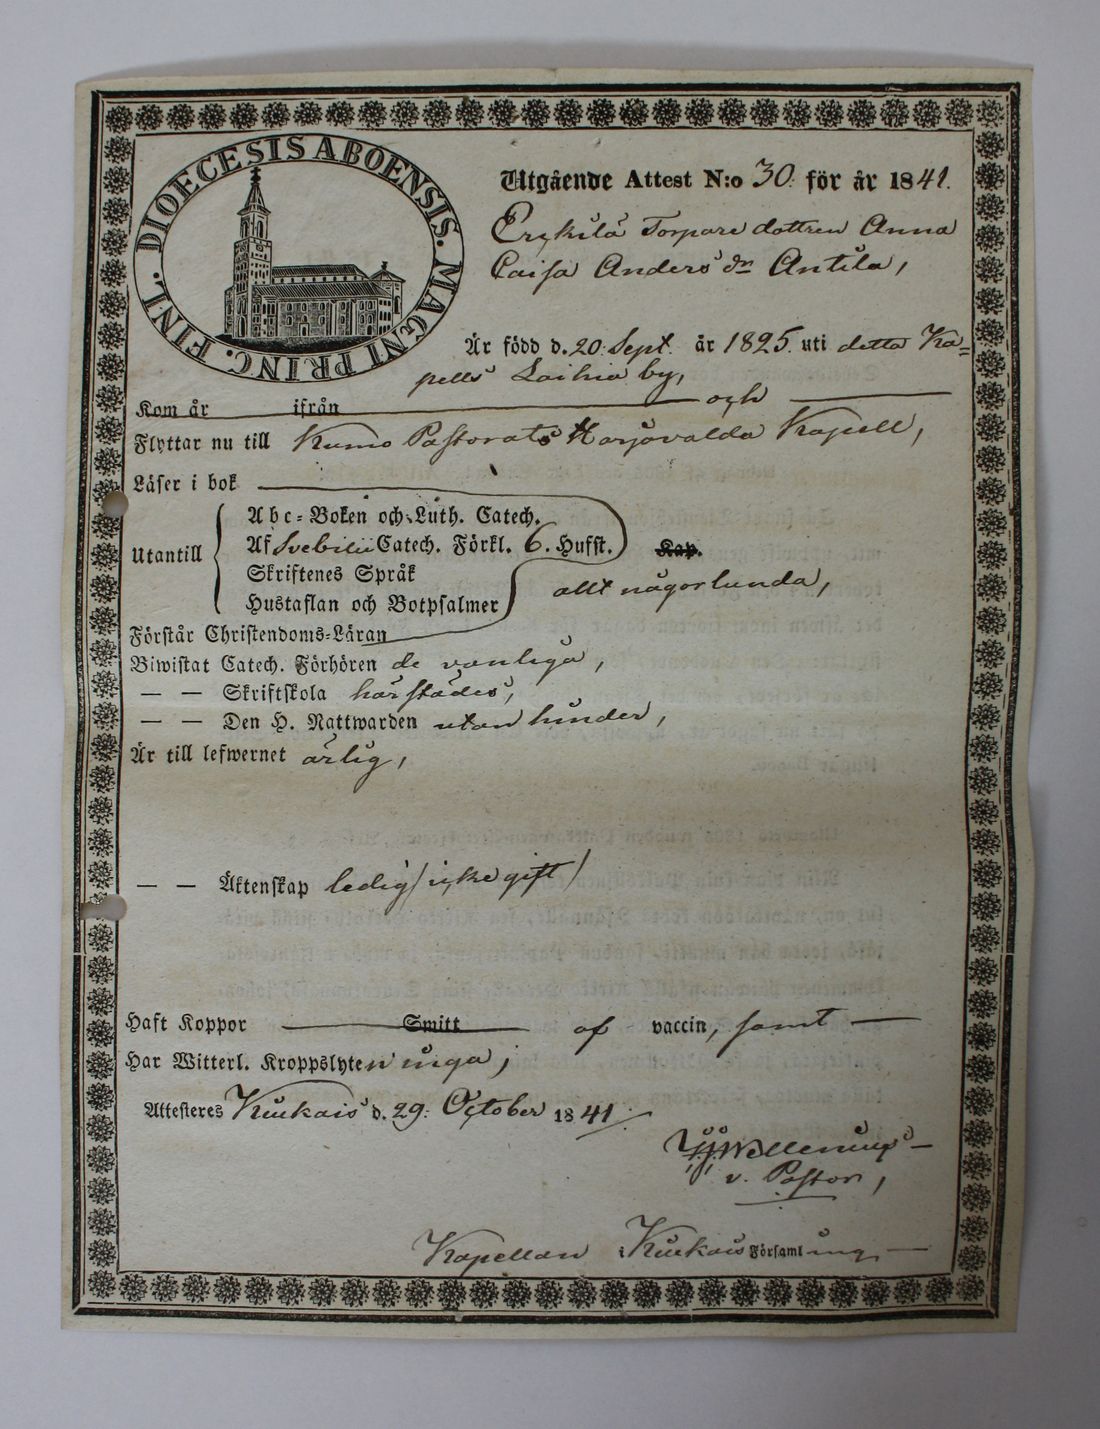 DIOECESIS ABOENSIS. MAGNI PRINC. FINL.
Utgående Attest N:o 30. för år 1841.
Torpare dottren Anna
Caisa Anders dr Antila,
Är född d. 20. Sept. år 1825. uti detta Ka=
pells Laihia by,
Kom år ifrån och
Flyttar nu till Kumo Pastorats Harjavalda Kapell,
Läser i bok
Utantill
Abc=Boken och Luth. Catech.
Af Svebilii Catech. Förkl. 6. Hufst. Kap.
Skriftenes Språk
allt någorlunda,
Hustaflan och Botpsalmer
Förstår Christendoms=Läran
Biwistat Catech. Förhören de vanliga,
— — Skriftskola härstädes,
— — Den H. Nattwarden utan hinder,
Är till lefwernet ärlig,
— — Äktenskap ledig / icke gift /
Haft Koppor Smitt af vaccin, samt —
Har Witterl. Kroppslyten inga,
Attesteres Kiukais d. 29. October 1841.
v. Pastor,
Kapellan i Kiukais Församling